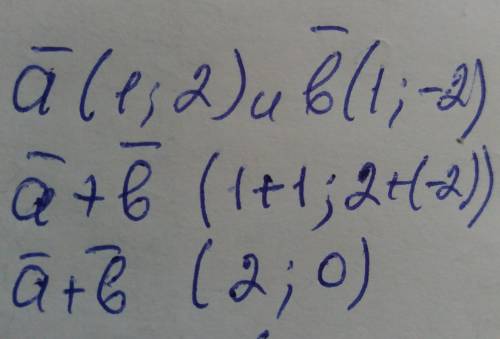 a̅ (1; 2) и b̅ (1; -2)
a̅ + b̅ (1+1; 2+(-2))
a̅ + b̅ (2; 0)